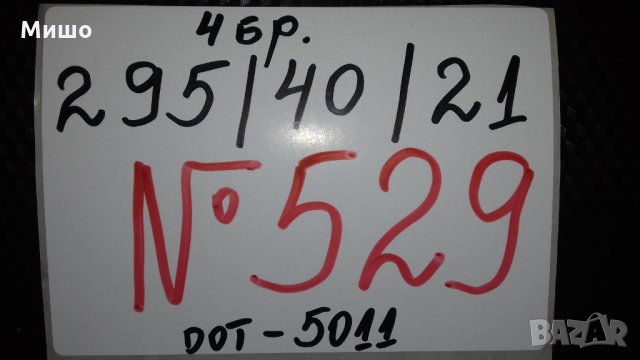 Мишо
4 бр.
295/40/21
№ 529
DOT-5011
BAZAR